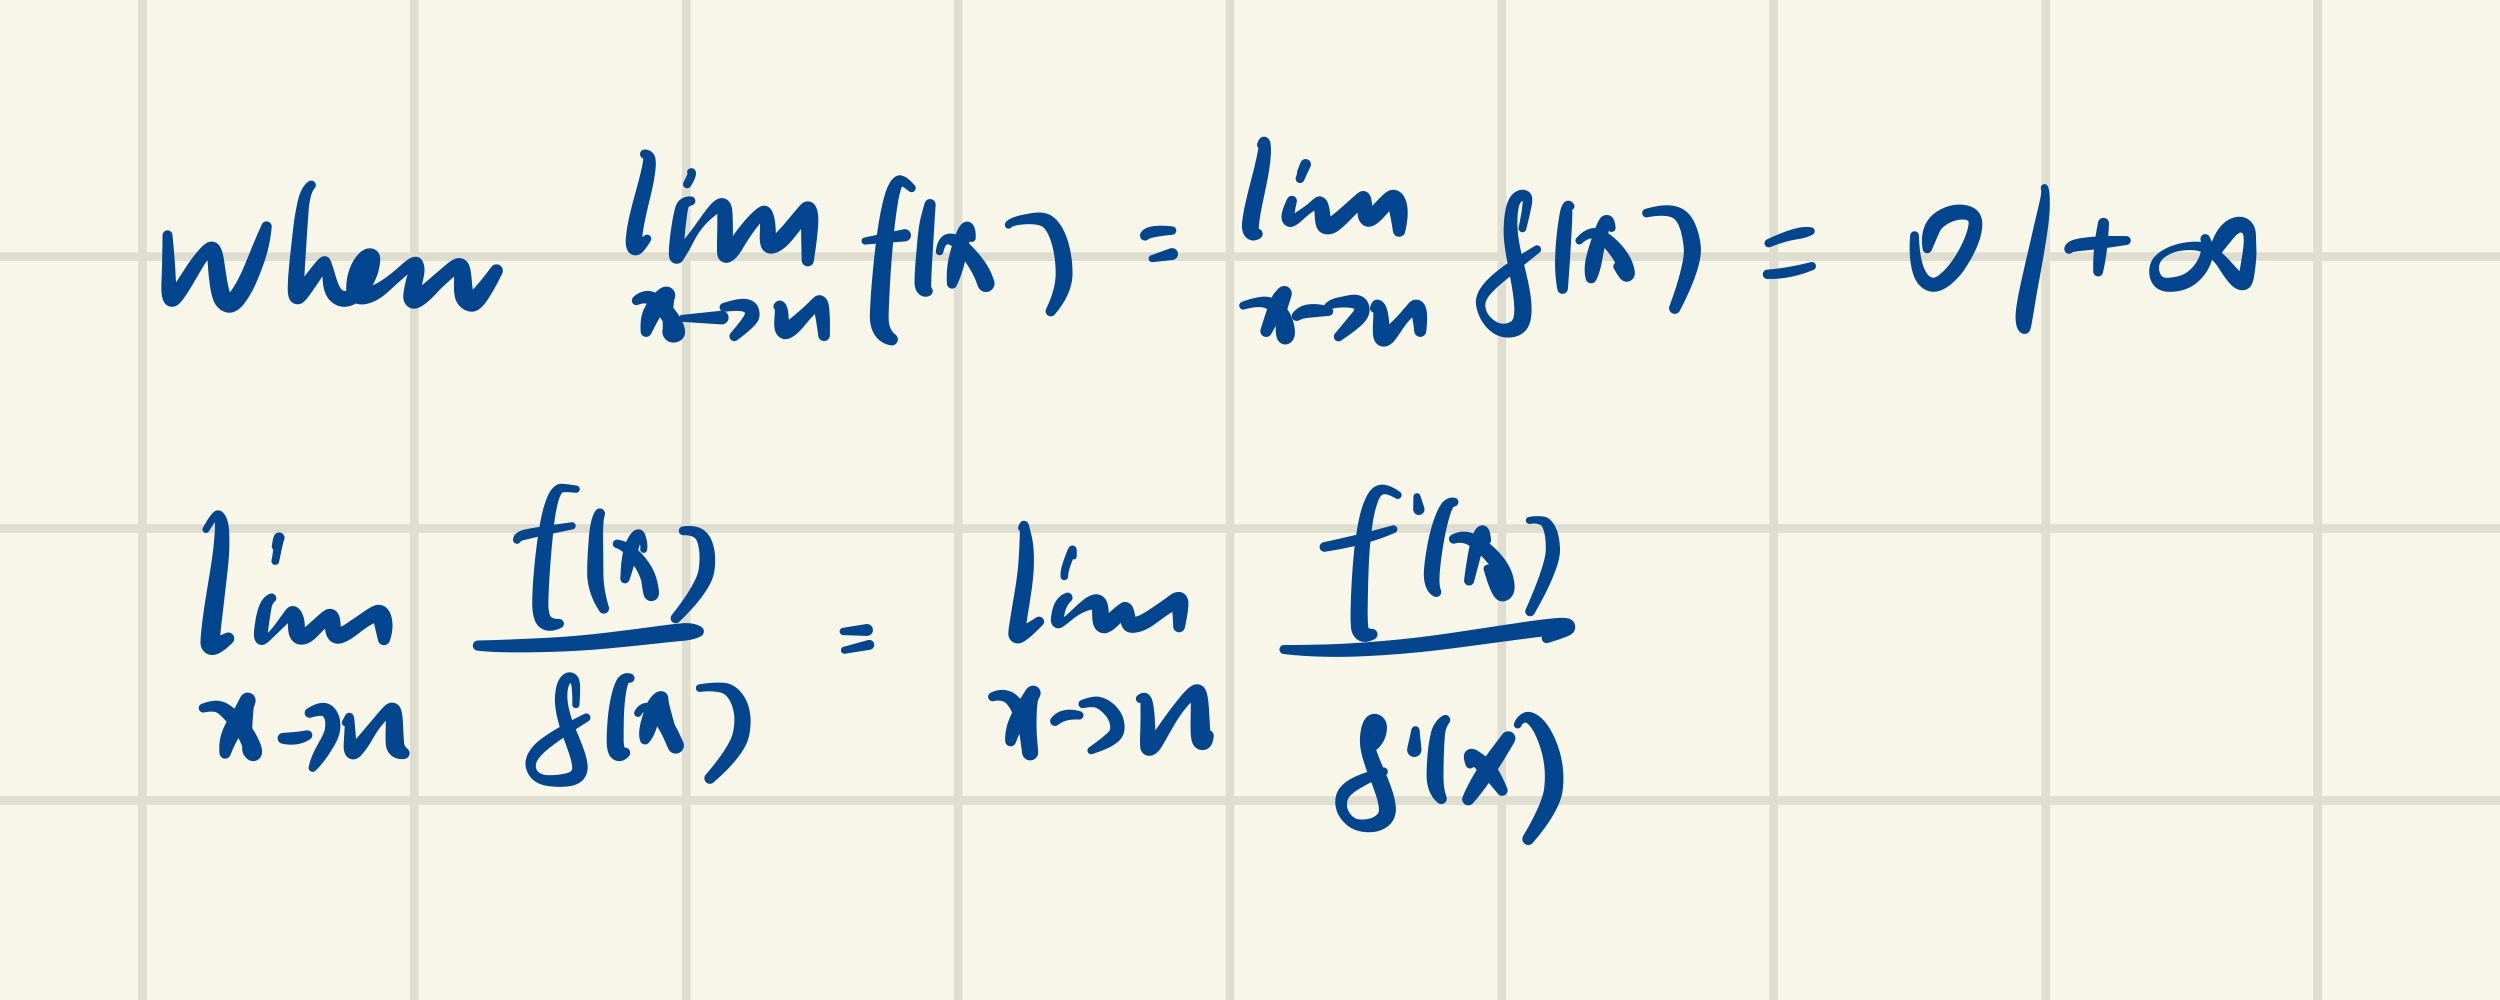 when lim x→n f(x) = lim x→n g(x) = 0/+∞
lim x→n f(x)/g(x) = lim x→n f'(x)/g'(x)